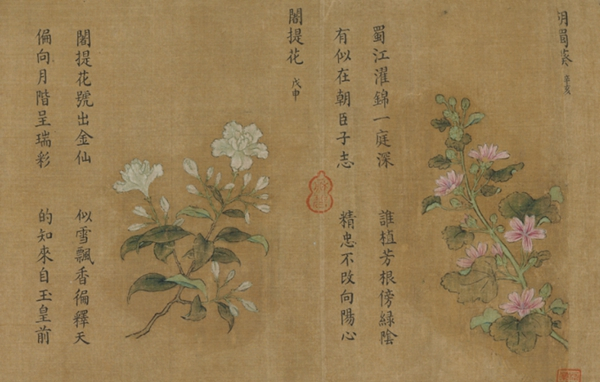 蜀葵 辛亥
蜀江濯錦一庭深 誰植芳根傍緑陰
有似在朝臣子志 精忠不改向陽心
闍提花 戊申
闍提花號出金仙 似雪飄香徧釋天
偏向月階呈瑞彩 的知來自玉皇前